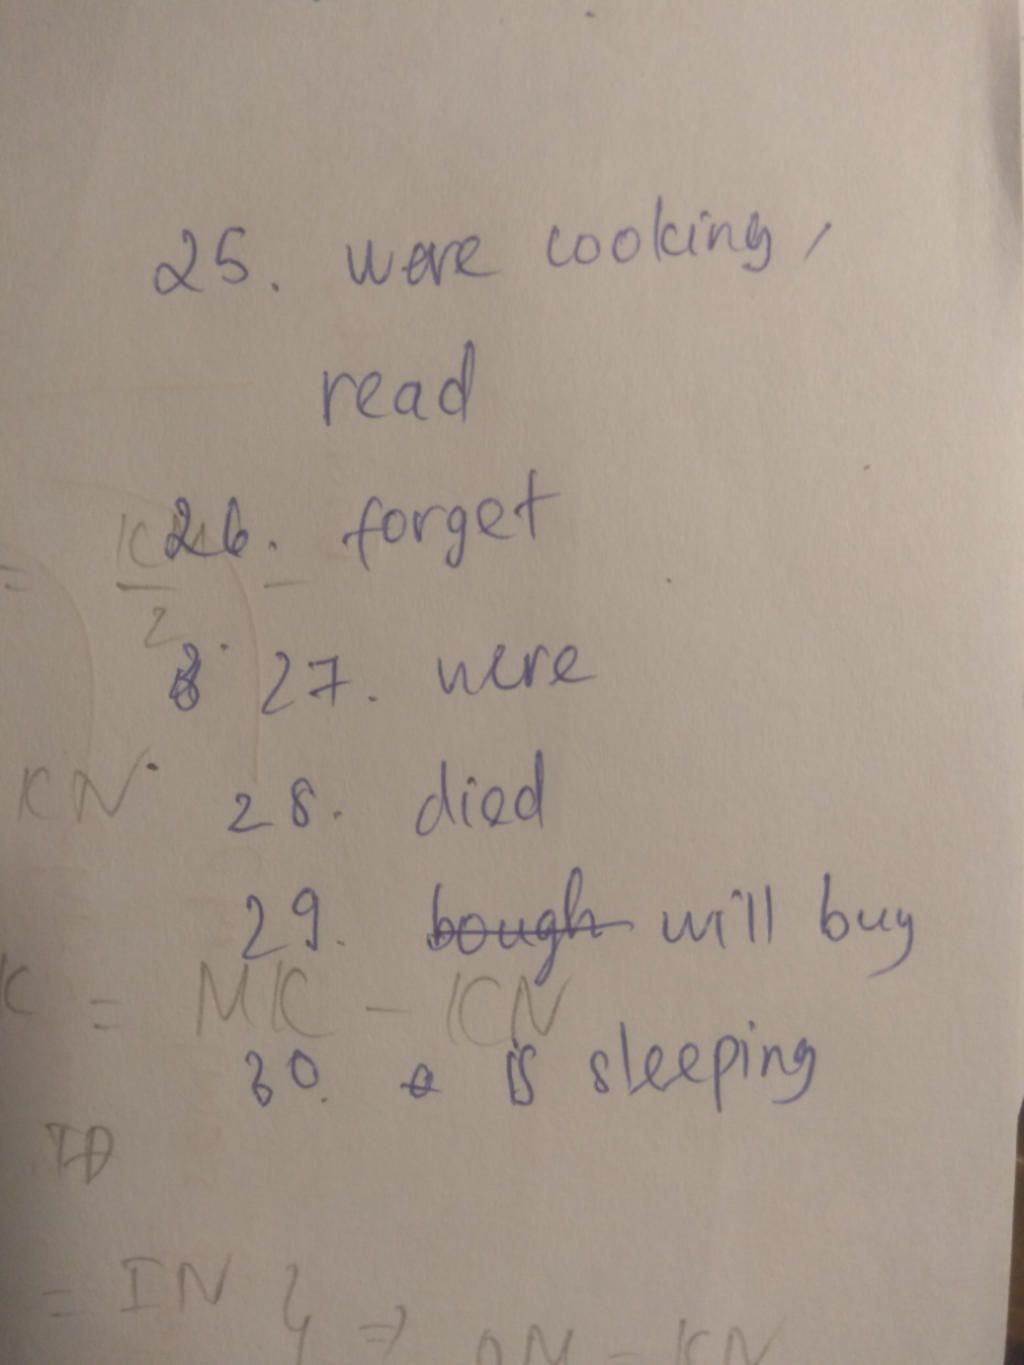 25. were cooking,
read
26. forget
27. were
28. died
29. bough will buy
30. is sleeping
KN
K = MK - KN
= IN } =>